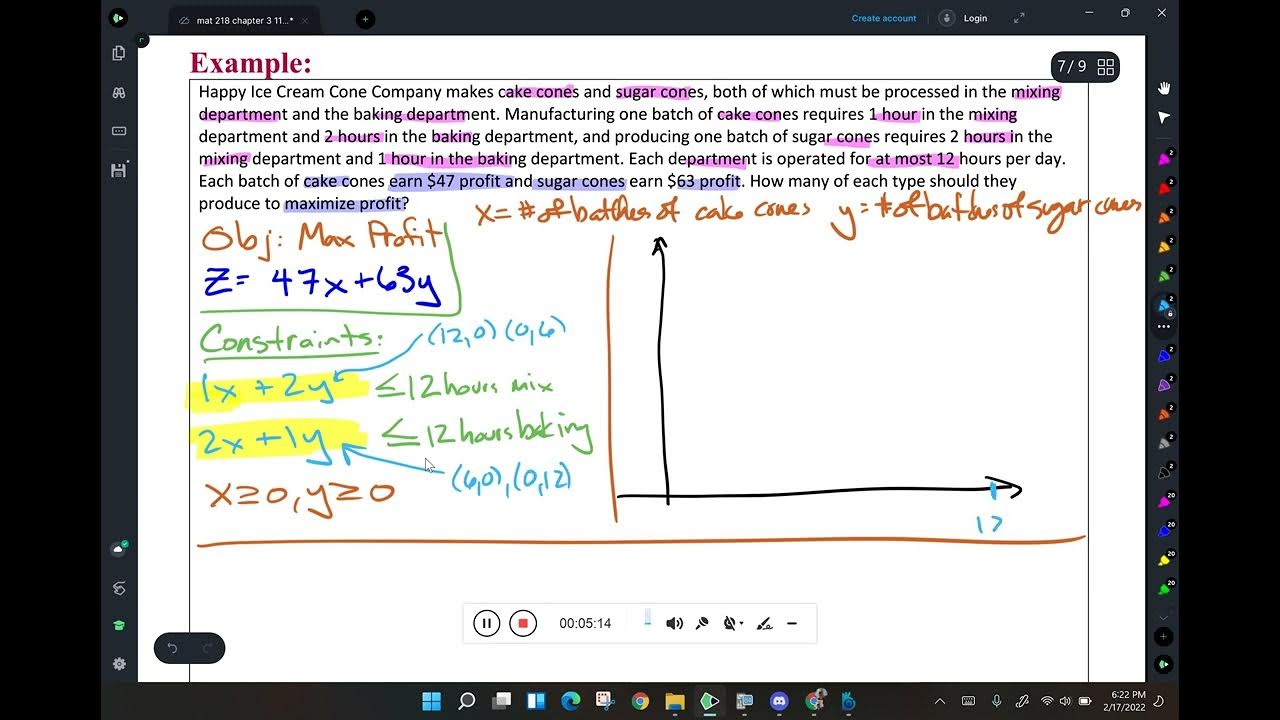 mat 218 chapter 3 11...*
Create account
Login
7 / 9
Example:
Happy Ice Cream Cone Company makes cake cones and sugar cones, both of which must be processed in the mixing
department and the baking department. Manufacturing one batch of cake cones requires 1 hour in the mixing
department and 2 hours in the baking department, and producing one batch of sugar cones requires 2 hours in the
mixing department and 1 hour in the baking department. Each department is operated for at most 12 hours per day.
Each batch of cake cones earn $47 profit and sugar cones earn $63 profit. How many of each type should they
produce to maximize profit?
x = # of batches of cake cones y = # of batches of sugar cones
Obj: Max Profit
Z = 47x + 63y
Constraints:
(12,0) (0,6)
1x + 2y ≤ 12 hours mix
2x + 1y ≤ 12 hours baking
(6,0), (0,12)
x ≥ 0, y ≥ 0
12
00:05:14
6:22 PM
2/17/2022